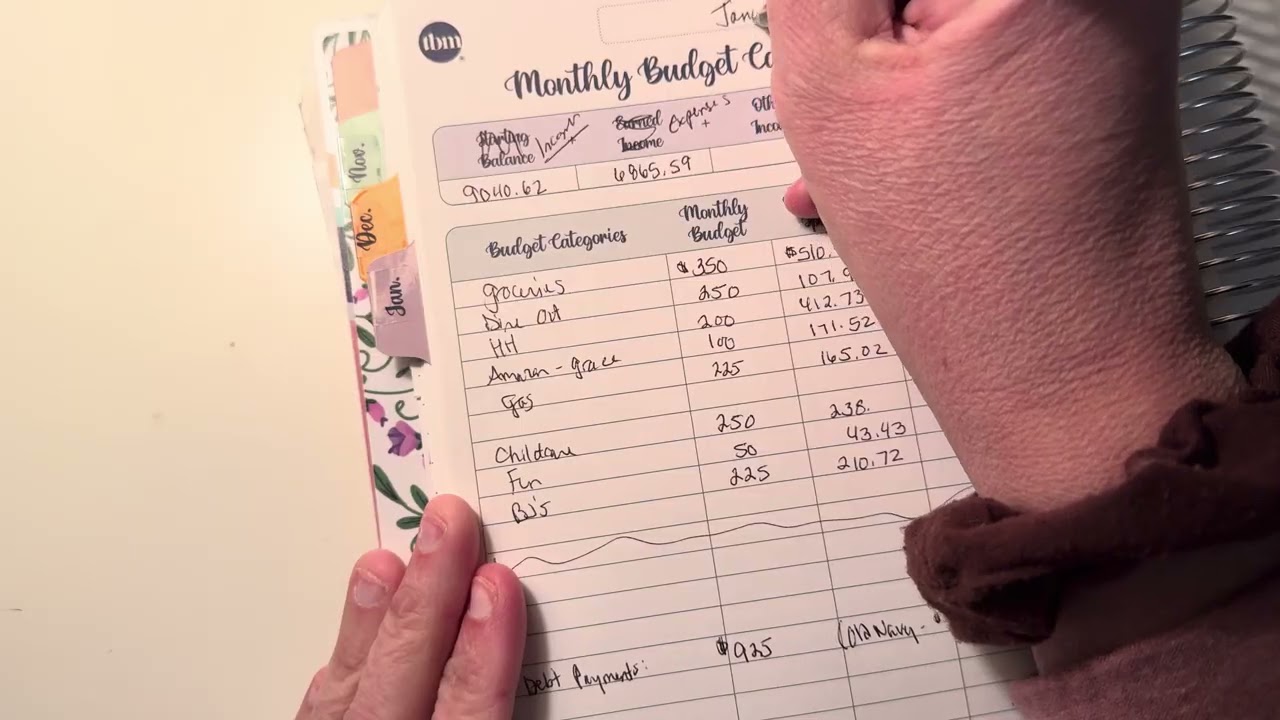 tbm
Janu
Monthly Budget Ca
Starting Balance Income + Earned Income Expenses + Oth Inco
9040.62 6865.59
Budget Categories Monthly Budget
groceries $350 $510.
Dine Out 250 107.9
HH 200 412.73
Amazon - grace 100 171.52
Gas 225 165.02
Childcare 250 238.
Fun 50 43.43
BJ's 225 210.72
Debt Payments: $925 (Old Navy -
Nov.
Dec.
Jan.